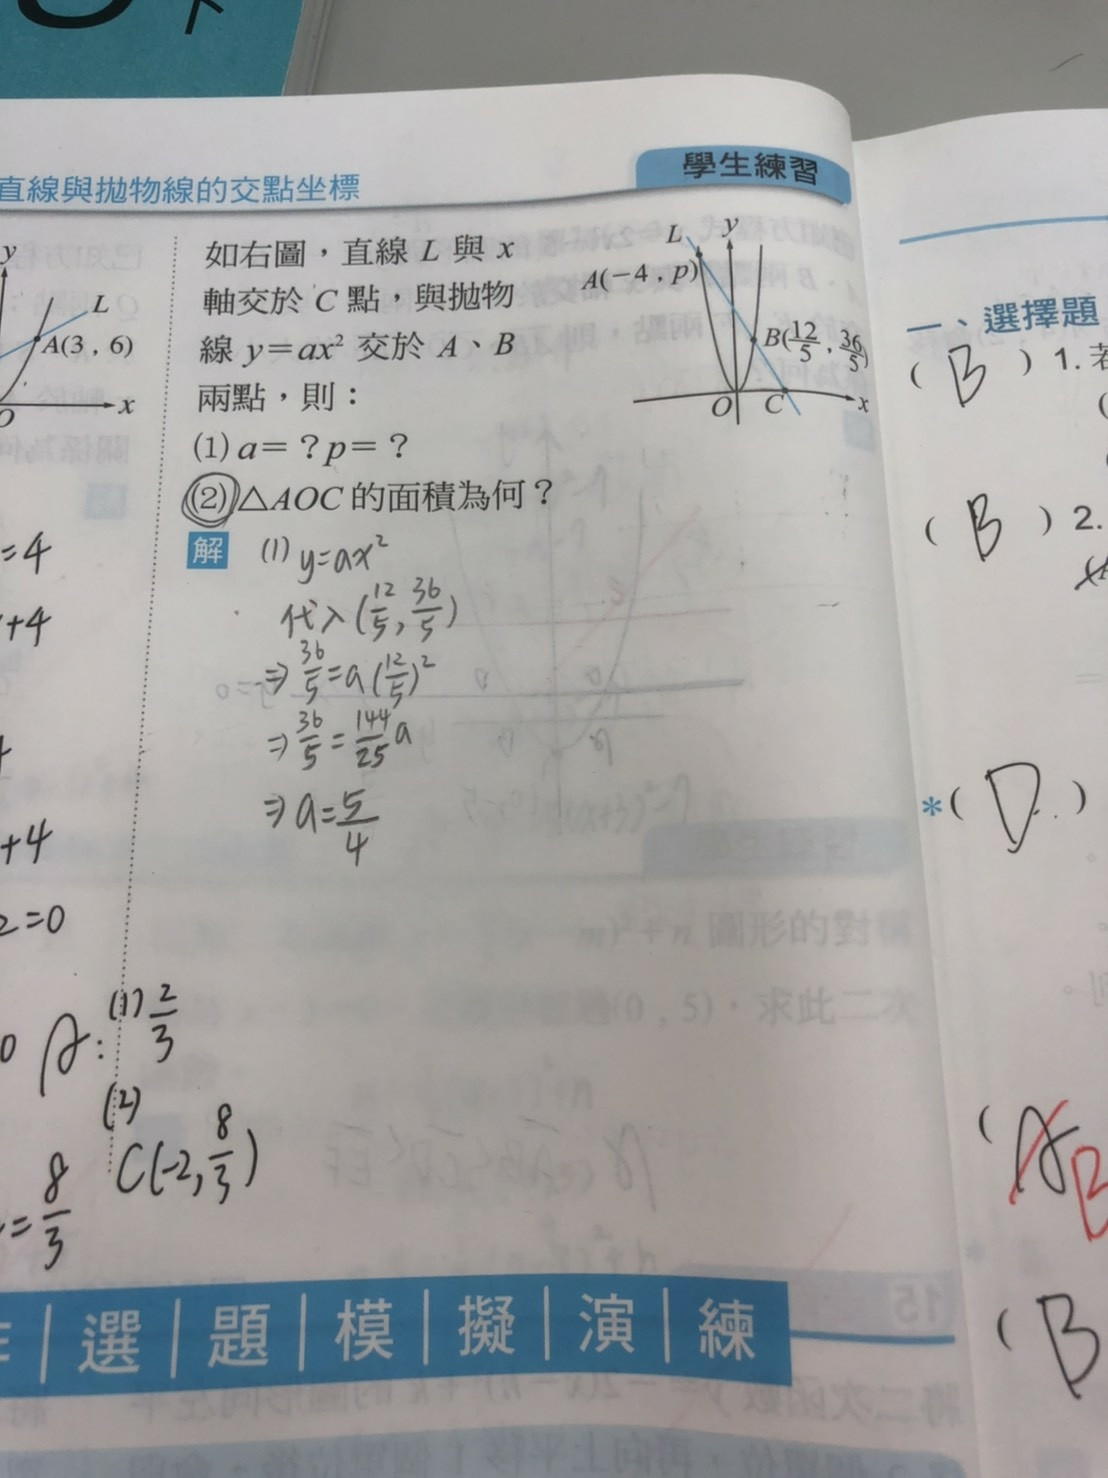 直線與拋物線的交點坐標
學生練習
y
L
A(3 , 6)
x
O
如右圖，直線 L 與 x
軸交於 C 點，與拋物
線 y=ax² 交於 A、B
兩點，則：
(1) a=？p=？
(2) △AOC 的面積為何？
L
y
A(−4 , p)
B(12/5 , 36/5)
O
C
x
解
(1) y=ax²
代入(12/5, 36/5)
⇒ 36/5=a(12/5)²
⇒ 36/5=144/25 a
⇒ a=5/4
=4
+4
+4
2=0
A: (1) 2/3
(2)
C(-2, 8/3)
=8/3
選題模擬演練
一、選擇題
( B ) 1. 若
( B ) 2.
*( D )
( A B
( B